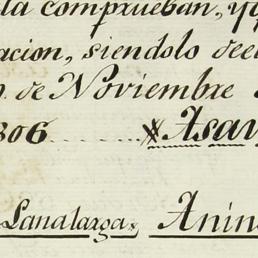 la comprueban, y
acion, siendolo de el
n. de Noviembre
806 Asav
Lanalarga, Anin